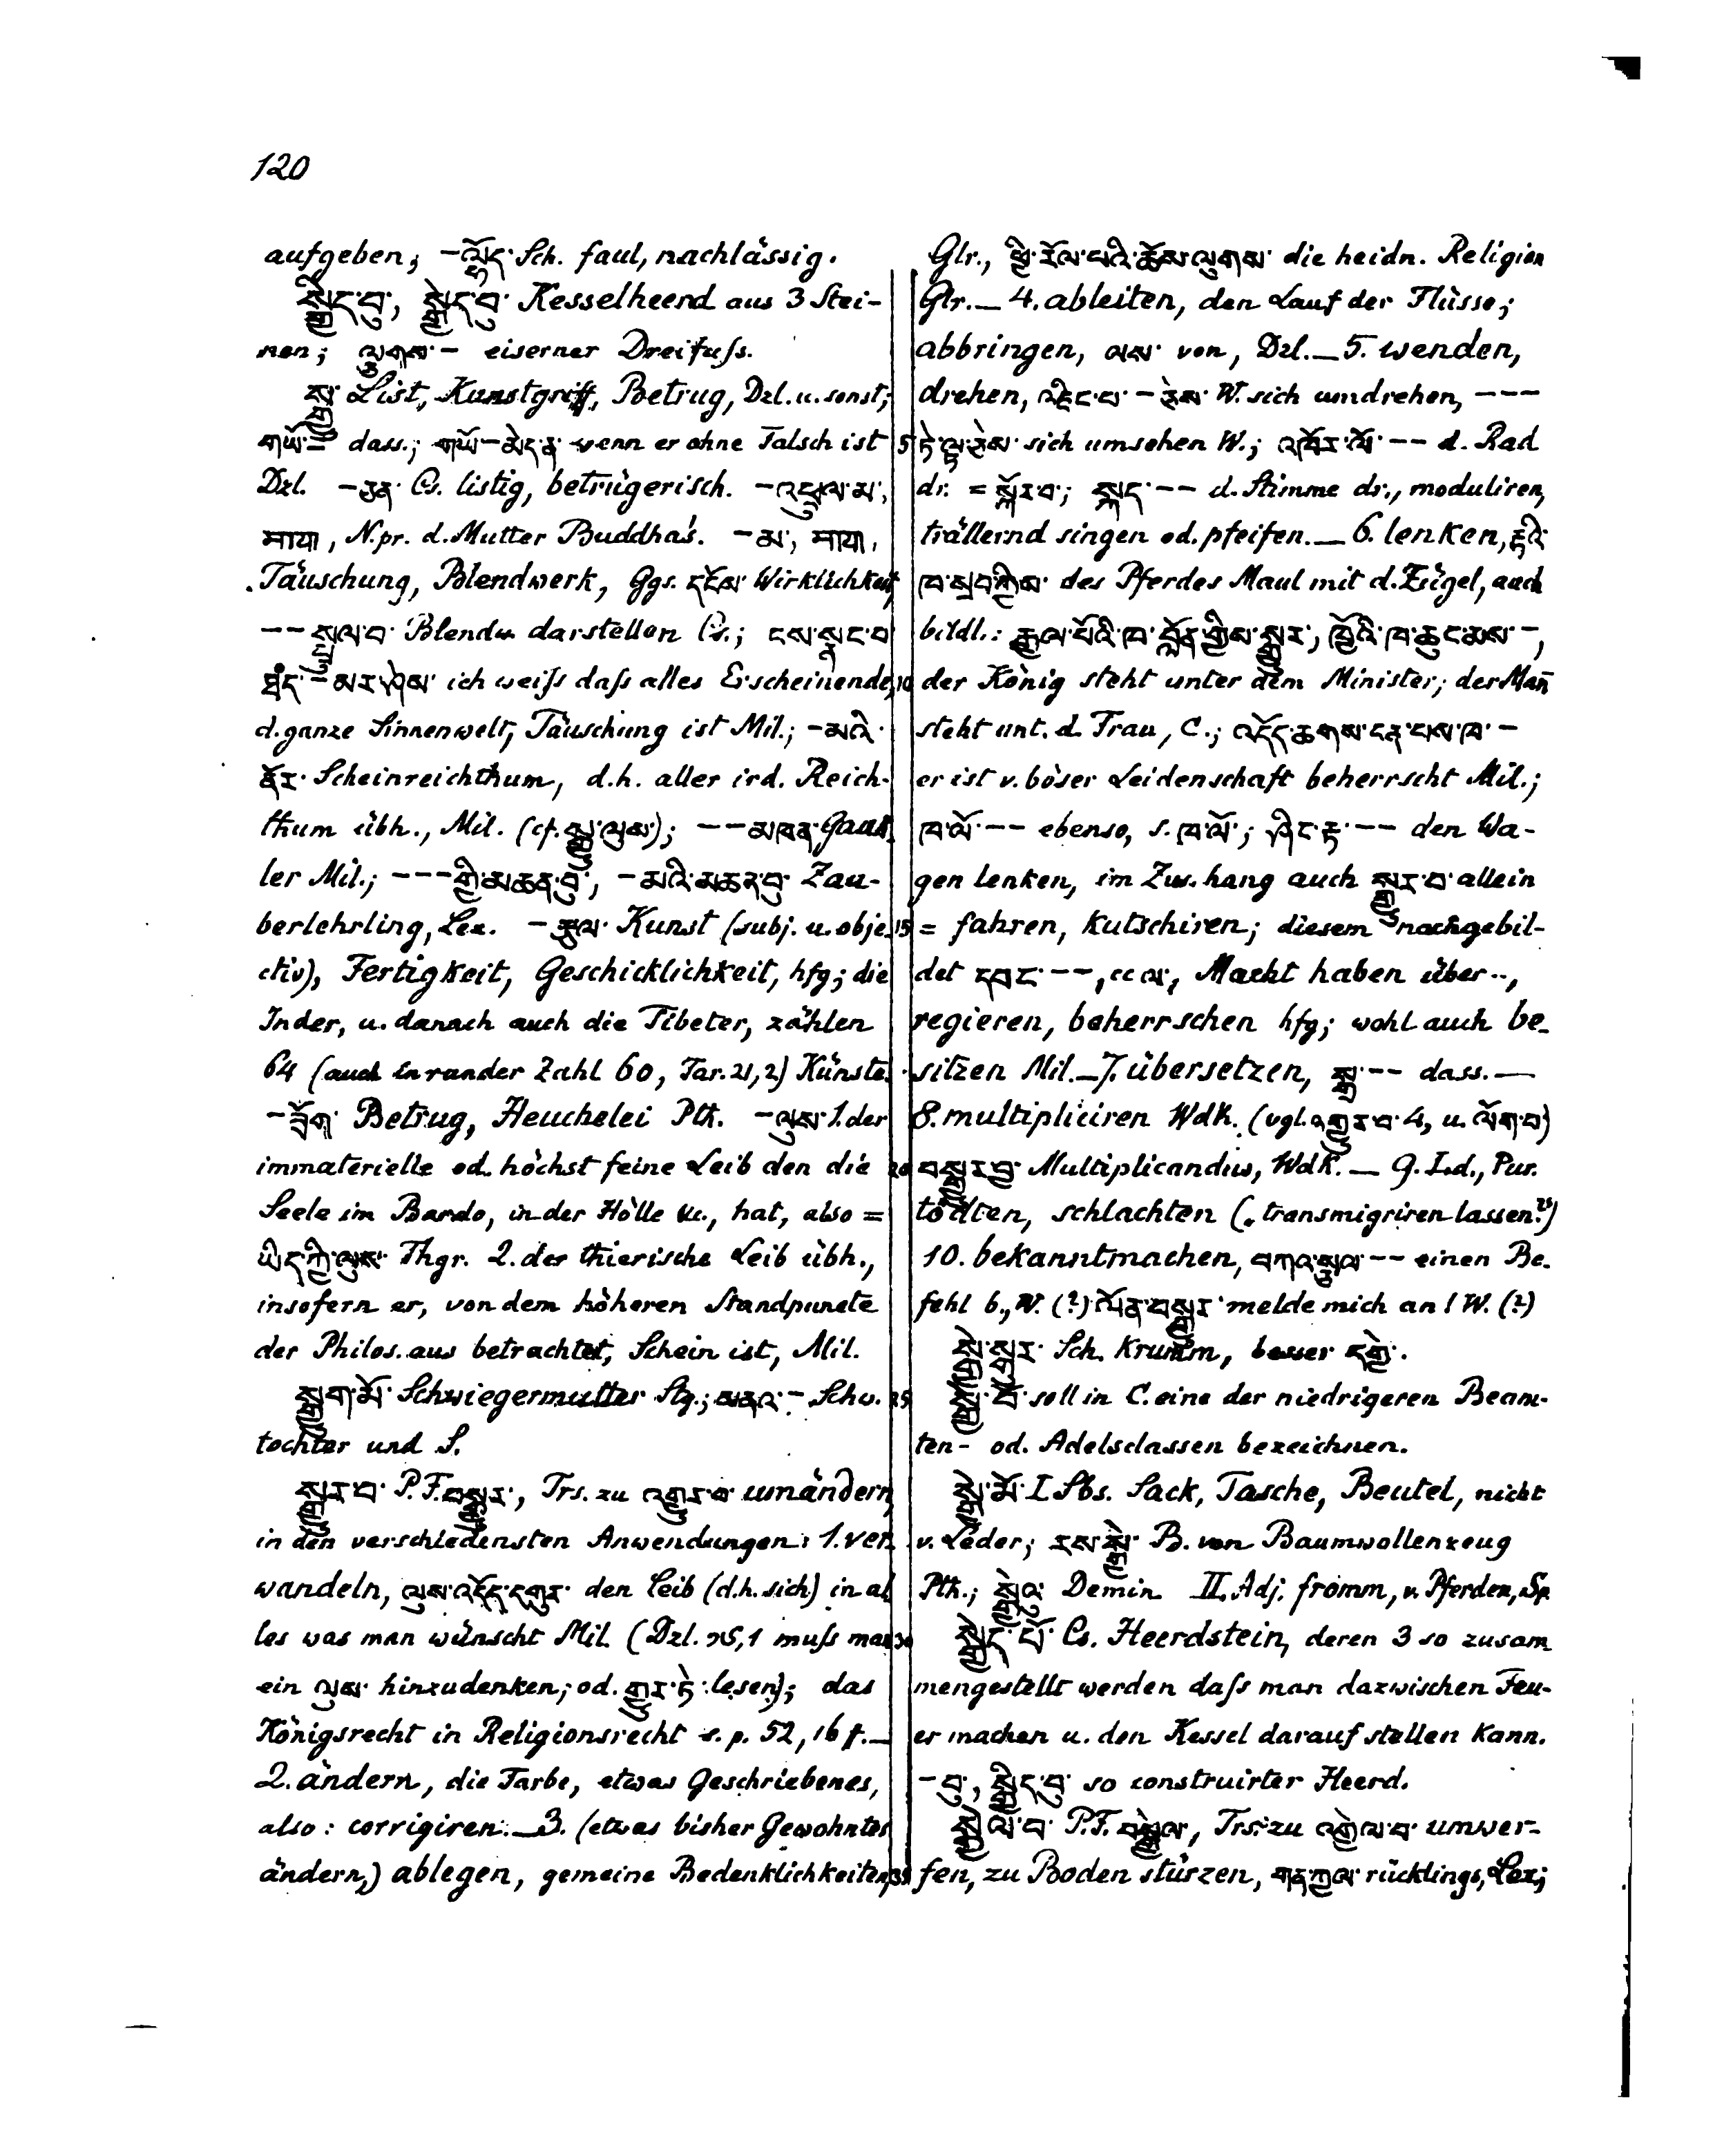 120
aufgeben; –ལྷོད་ Sch. faul, nachlässig.
སྒྱིད་བུ་, སྒྱེད་བུ་ Kesselheerd aus 3 Stei-
nen; ལྕགས་– eiserner Dreifuſs.
སྒྱུ་ List, Kunstgriff, Betrug, Dzl. u. sonst;
གཡོ་= dass.; གཡོ–མེད་ན་ wenn er ohne Falsch ist
Dzl. –ཅན་ Cs. listig, betrügerisch. –འཕྲུལ་མ་,
माया, N.pr. d. Mutter Buddha's. –མ་, माया,
Täuschung, Blendwerk, Ggs. དངོས་ Wirklichkeit,
–– སྤྲུལ་བ་ Blendw. darstellen Cs.; ངས་སྣང་བ་
ཐམས་ཅད་–མར་ཤེས་ ich weiſs daſs alles Erscheinende,
d. ganze Sinnenwelt, Täuschung ist Mil.; –མའི་
ནོར་ Scheinreichthum, d.h. aller ird. Reich-
thum übh., Mil. (cf. སྒྱུ་ལུས་); ––མཁན་ Gauk-
ler Mil.; –––གྱི་མཆན་བུ་, –མའི་མཆན་བུ་ Zau-
berlehrling, Lex. –རྩལ་ Kunst (subj. u. obje-
ctiv), Fertigkeit, Geschicklichkeit, hfg; die
Inder, u. danach auch die Tibeter, zählen
64 (auch in runder Zahl 60, Tar. 21,2) Künste.
–ཟོག་ Betrug, Heuchelei Pth. –ལུས་ 1. der
immaterielle od. höchst feine Leib den die
Seele im Bardo, in der Hölle etc., hat, also =
ཡིད་ཀྱི་ལུས་ Thgr. 2. der thierische Leib übh.,
insofern er, von dem höheren Standpuncte
der Philos. aus betrachtet, Schein ist, Mil.
སྒྱུག་མོ་ Schwiegermutter Stg.; མནའ་– Schw.
tochter und S.
སྒྱུར་བ་ P.F. བསྒྱུར་, Trs. zu འགྱུར་བ་ umändern,
in den verschiedensten Anwendungen: 1. ver-
wandeln, ལུས་འདོད་དགུར་ den Leib (d.h. sich) in al
les was man wünscht Mil. (Dzl. 25,1 muſs man
ein ལུས་ hinzudenken; od. གྱུར་ཏེ་ lesen); das
Königsrecht in Religionsrecht s. p. 52, 16 f.—
2. ändern, die Farbe, etwas Geschriebenes,
also: corrigiren.—3. (etwas bisher Gewohntes
ändern,) ablegen, gemeine Bedenklichkeiten,
Glr., ཕྱི་རོལ་པའི་ཆོས་ལུགས་ die heidn. Religion
Glr.— 4. ableiten, den Lauf der Flüsse;
abbringen, ལས་ von, Dzl.— 5. wenden,
drehen, འཇིང་པ་–ཅེས་ W. sich umdrehen, –––
ཏེ་ལྟ་ཅེས་ sich umsehen W.; འཁོར་ལོ་–– d. Rad
dr. = སྐོར་བ་; སྐད་–– d. Stimme dr., moduliren,
trällernd singen od. pfeifen.— 6. lenken, རྟའི་
ཁ་སྲབ་ཀྱིས་ des Pferdes Maul mit d. Zügel, auch
bildl.: རྒྱལ་པོའི་ཁ་བློན་གྱིས་སྒྱུར་, ཁྱོའི་ཁ་ཆུང་མས་–,
der König steht unter dem Minister; der Mañ
steht unt. d. Frau, C.; འདོད་ཆགས་ངན་པས་ཁ་–
er ist v. böser Leidenschaft beherrscht Mil.;
ཁ་ལོ་–– ebenso, s. ཁ་ལོ་; ཤིང་རྟ་–– den Wa-
gen lenken, im Zus.hang auch སྒྱུར་བ་ allein
= fahren, kutschiren; diesem nachgebil-
det དབང་––, cc ལ་, Macht haben über..,
regieren, beherrschen hfg; wohl auch be-
sitzen Mil.—7. übersetzen, སྒྲ་–– dass.—
8. multipliciren Wdk. (vgl. འགྱུར་བ་ 4, u. ལོག་པ་)
བསྒྱུར་བྱ་ Multiplicandus, Wdk.— 9. Ld., Pur.
tödten, schlachten („transmigriren lassen?“)
10. bekanntmachen, བཀའ་སྩལ་–– einen Be-
fehl b., W. (?) ལོན་བསྒྱུར་ melde mich an! W. (?)
སྒྱེ་སྒྱུར་ Sch. krumm, besser དགྱེ་.
སྒྱེ་བོ་ soll in C. eine der niedrigeren Beam-
ten- od. Adelsclassen bezeichnen.
སྒྱེ་མོ་ I Sbs. Sack, Tasche, Beutel, nicht
v. Leder; རས་སྒྱེ་ B. von Baumwollenzeug
Pth.; སྒྱེའུ་ Demin II. Adj. fromm, v. Pferden, Sp.
སྒྱེད་པོ་ Cs. Heerdstein, deren 3 so zusam
mengestellt werden daſs man dazwischen Feu-
er machen u. den Kessel darauf stellen kann.
–བུ་, སྒྱིད་བུ་ so construirter Heerd.
སྒྱེལ་བ་ P.F. བསྒྱེལ་, Trs. zu འགྱེལ་བ་ umwer-
fen, zu Boden stürzen, གན་རྐྱལ་ rücklings, Lex;